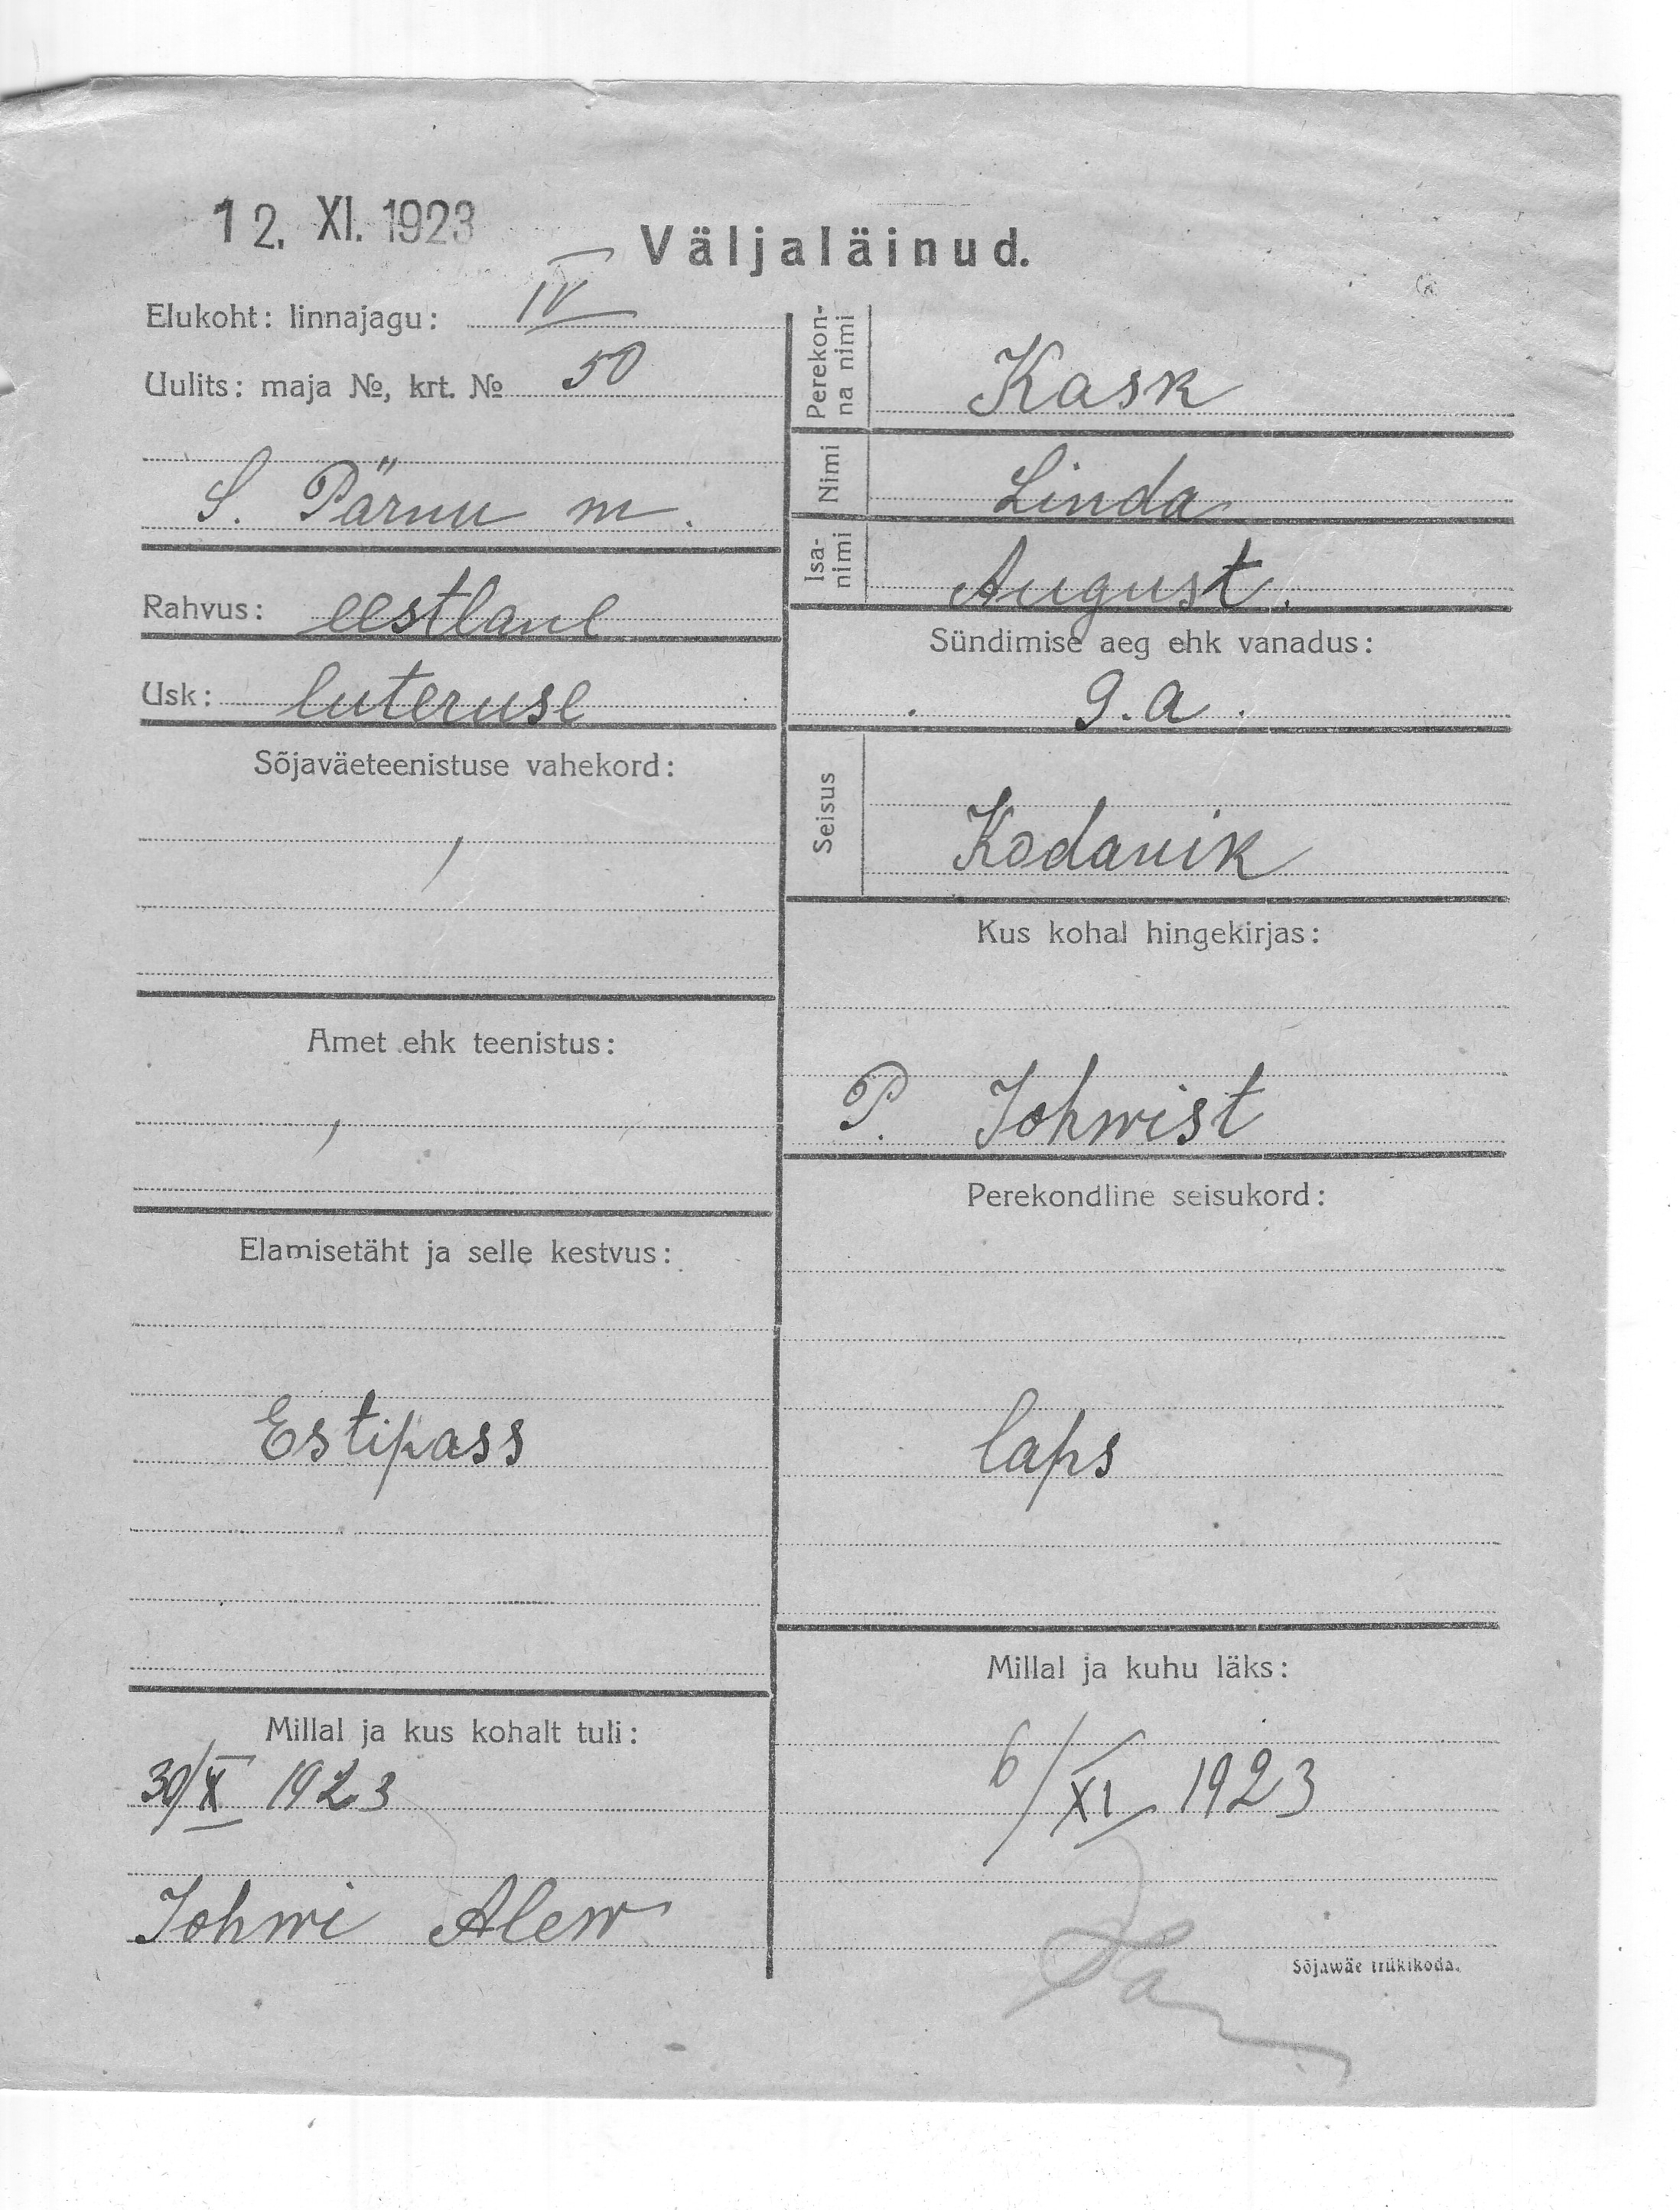 12. XI. 1923
Väljaläinud.
Elukoht: linnajagu: IV
Uulits: maja №, krt. № 50
S. Pärnu m.
Rahvus: eestlane
Usk: luteruse
Sõjaväeteenistuse vahekord:
Amet ehk teenistus:
Elamisetäht ja selle kestvus:
Estipass
Millal ja kus kohalt tuli:
30/X 1923
Johwi Alew
Perekon-
na nimi Kask
Nimi Linda
Isa-
nimi August.
Sündimise aeg ehk vanadus:
9.a.
Seisus Kodanik
Kus kohal hingekirjas:
P. Johwist
Perekondline seisukord:
laps
Millal ja kuhu läks:
6/XI 1923
Sõjawäe trükikoda.